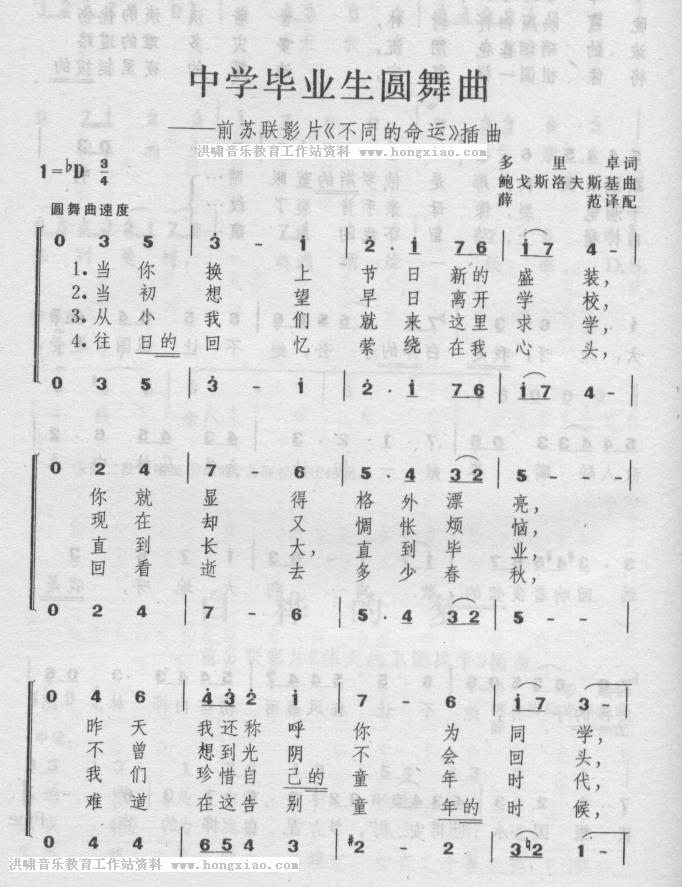 中学毕业生圆舞曲
——前苏联影片《不同的命运》插曲
洪啸音乐教育工作站资料 www.hongxiao.com
1=♭D 3/4
多里卓词
鲍戈斯洛夫斯基曲
薛范译配
圆舞曲速度
0 3 5 | 3 - i | 2 · i 76 | i7 4 - |
1.当你换上节日新的盛装,
2.当初想望早日离开学校,
3.从小我们就来这里求学,
4.往日的回忆萦绕在我心头,
0 3 5 | 3 - i | 2 · i 76 | i7 4 - |
0 2 4 | 7 - 6 | 5 · 4 32 | 5 - - |
你就显得格外漂亮,
现在却又惆怅烦恼,
直到长大,直到毕业,
回看逝去多少春秋,
0 2 4 | 7 - 6 | 5 · 4 32 | 5 - - |
0 4 6 | 4 3 2 i | 7 - 6 | i7 3 - |
昨天我还称呼你为同学,
不曾想到光阴不会回头,
我们珍惜自己的童年时代,
难道在这告别童年的时候,
0 4 4 | 65 4 3 | #2 - 2 | 3♮2 1 - |
洪啸音乐教育工作站资料 www.hongxiao.com